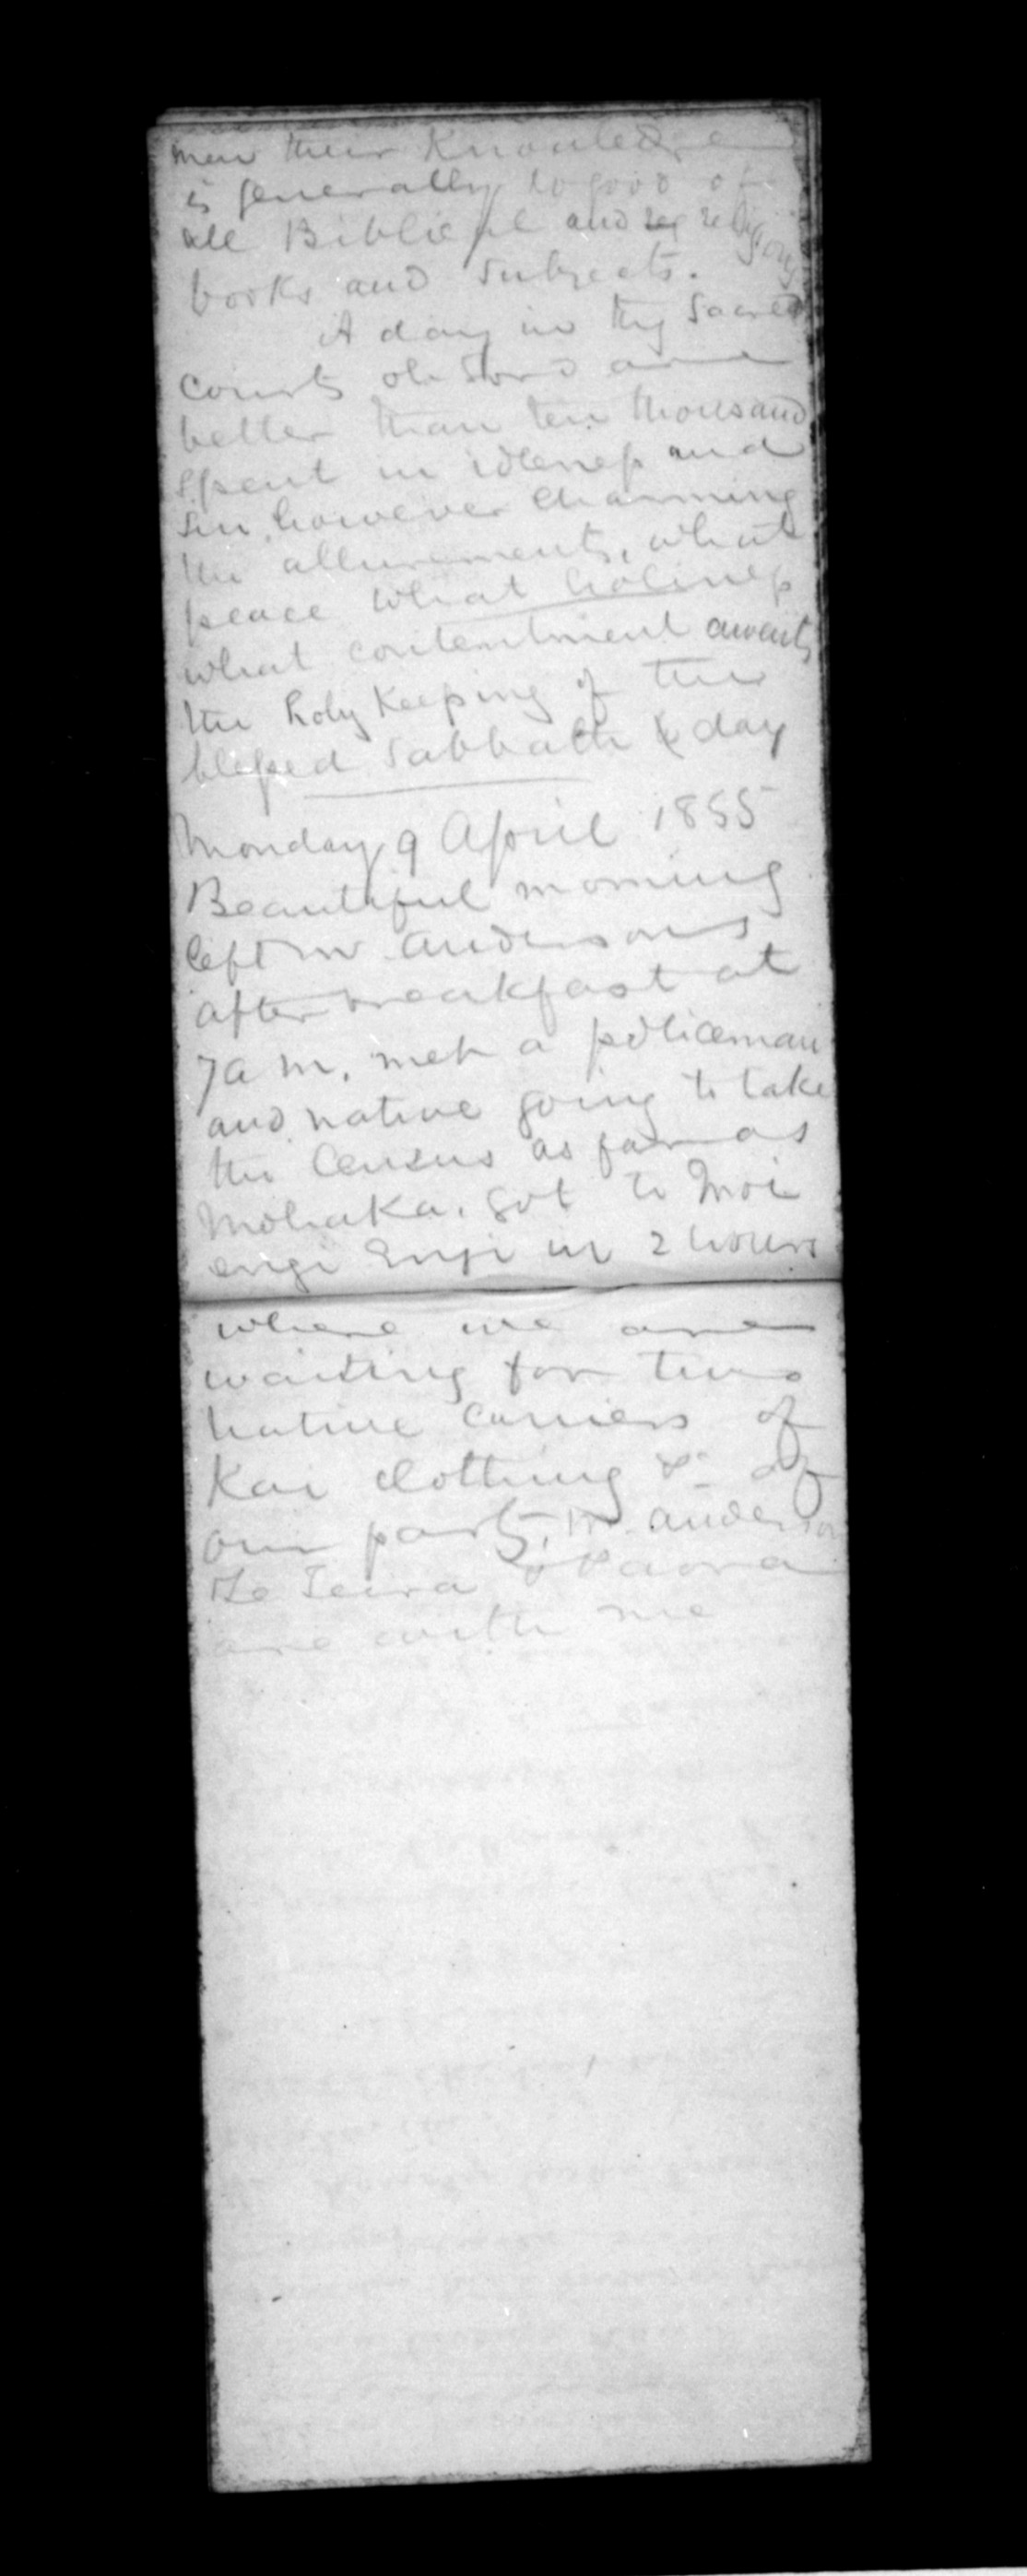 men their Knowledge
is generally so good of
all Biblical and religious
books and subjects.
A day in thy sacred
courts oh Lord are
better than ten thousand
spent in idleness and
sin, however charming
the allurements, what
peace what holiness
what contentment awaits
the holy Keeping of the
blessed Sabbath day
Monday 9 April 1855
Beautiful morning
left Mr Andersons
after breakfast at
7 a m. met a policeman
and native going to take
the Census as far as
Mohaka. got to Moi
engi Engi in 2 hours
where we are
waiting for two
native carriers of
Kai clothing &c of
our party. Mr. Anderson
Te Teira & Paora
are with me